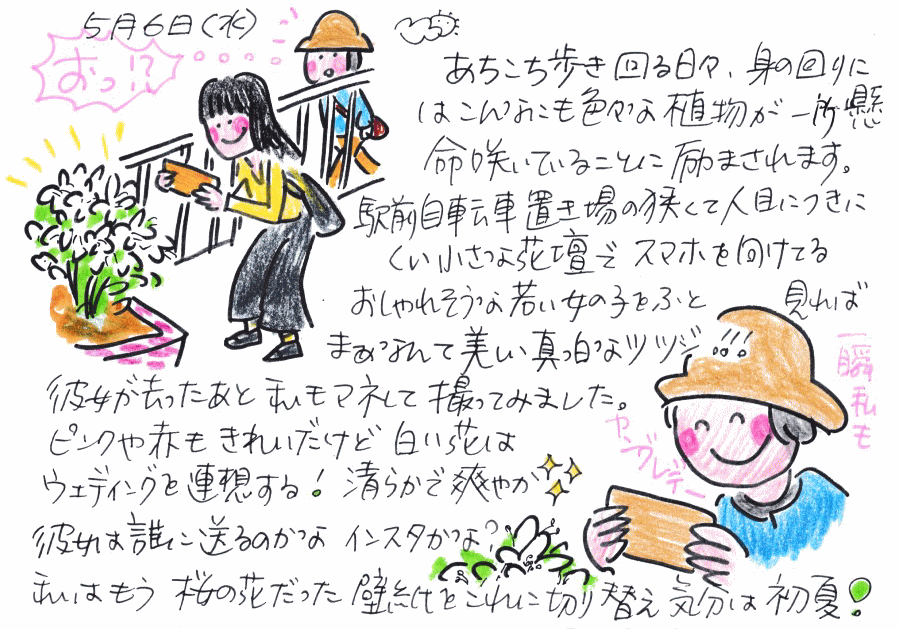 5月6日(水)
おっ!?
あちこち歩き回る日々、身の回りに
はこんなにも色々な植物が一所懸
命咲いていることに励まされます。
駅前自転車置き場の狭くて人目につきに
くい小さな花壇でスマホを向けてる
おしゃれそうな若い女の子をふと見れば
まあなんて美しい真っ白なツツジ
彼女が去ったあと私もマネして撮ってみました。
ピンクや赤もきれいだけど白い花は
ウェディングを連想する!清らかで爽やか
彼女は誰に送るのかな インスタかな?
私はもう桜の花だった壁紙をこれに切り替え気分は初夏!
一瞬私も
ヤングレディー